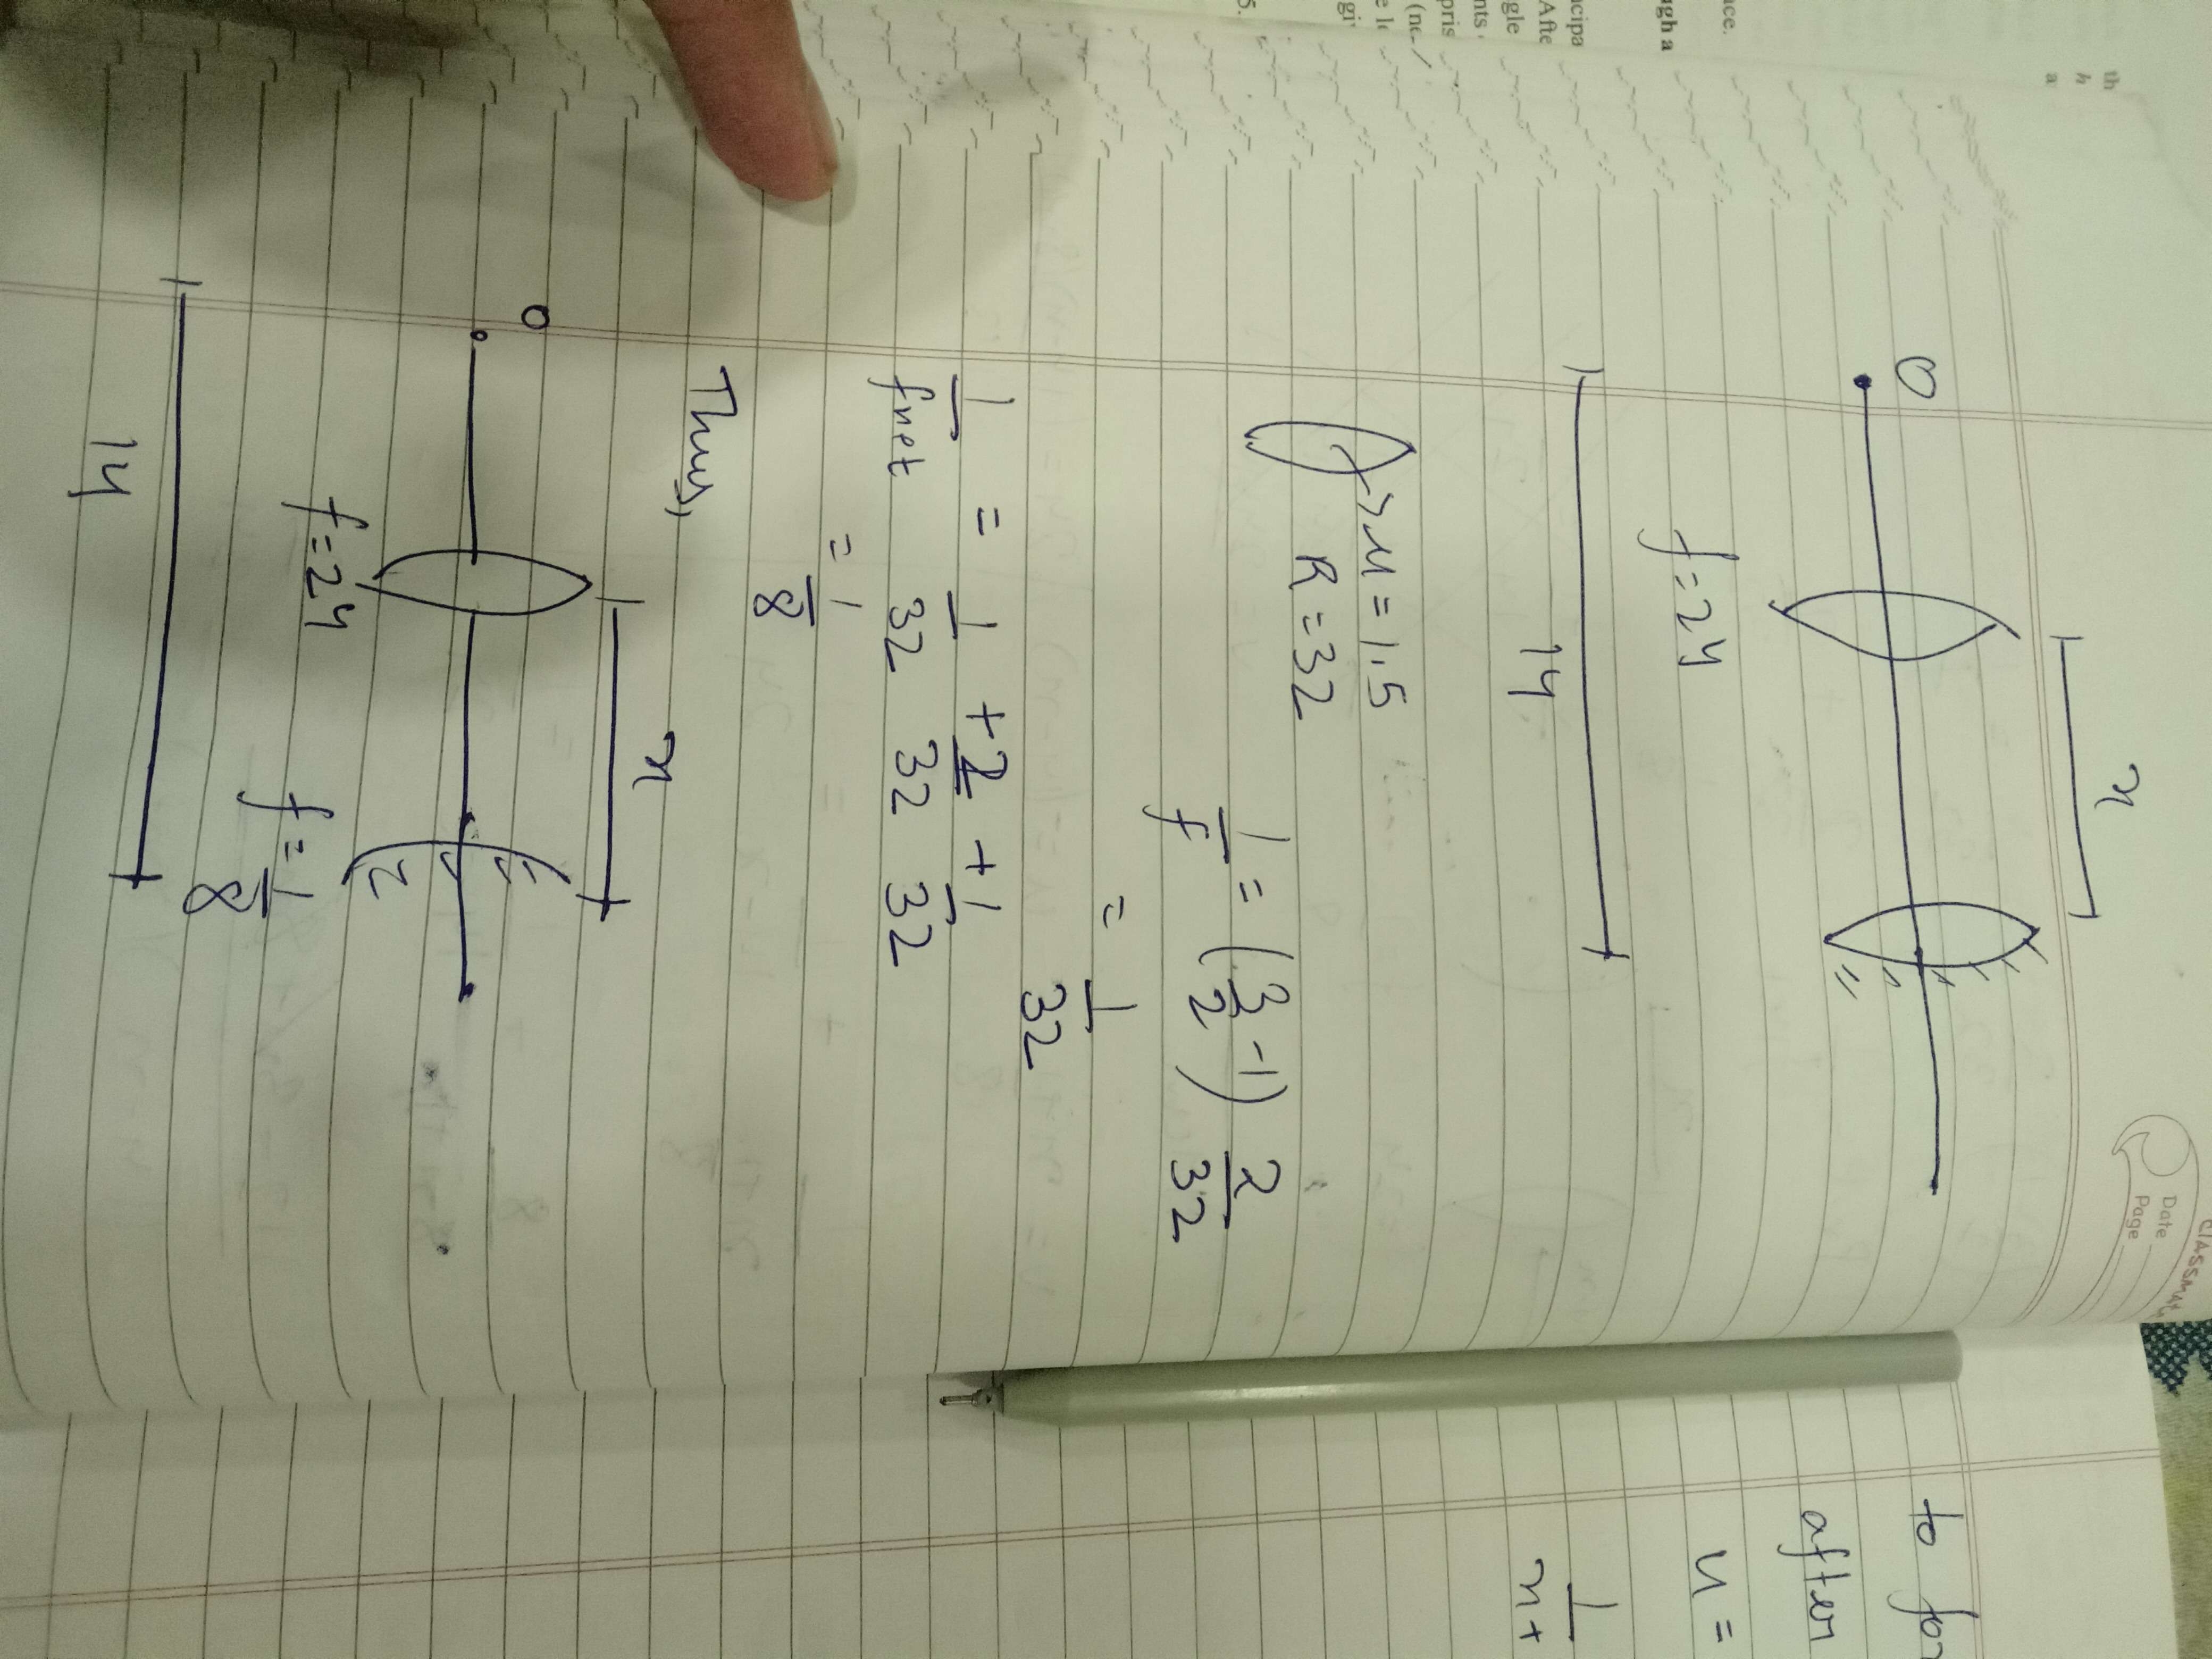 classmate
Date
Page
O
x
f = 24
14
μ = 1.5
R = 32
1/f = (3/2 - 1) 2/32
= 1/32
1/fnet = 1/32 + 2/32 + 1/32
= 1/8
Thus,
O
x
f = 24
f = 1/8
14
to for
after
u =
1/x+
ace.
ugh a
ncipa
Afte
gle
nts
pris
5.
th
h
a